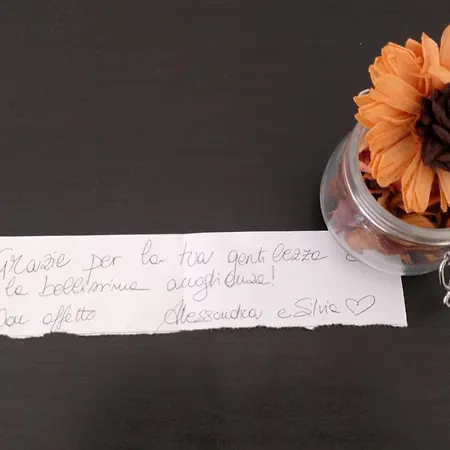 Grazie per la tua gentilezza e
la bellissima accoglienza!
Con affetto Alessandra e Silvia ♡